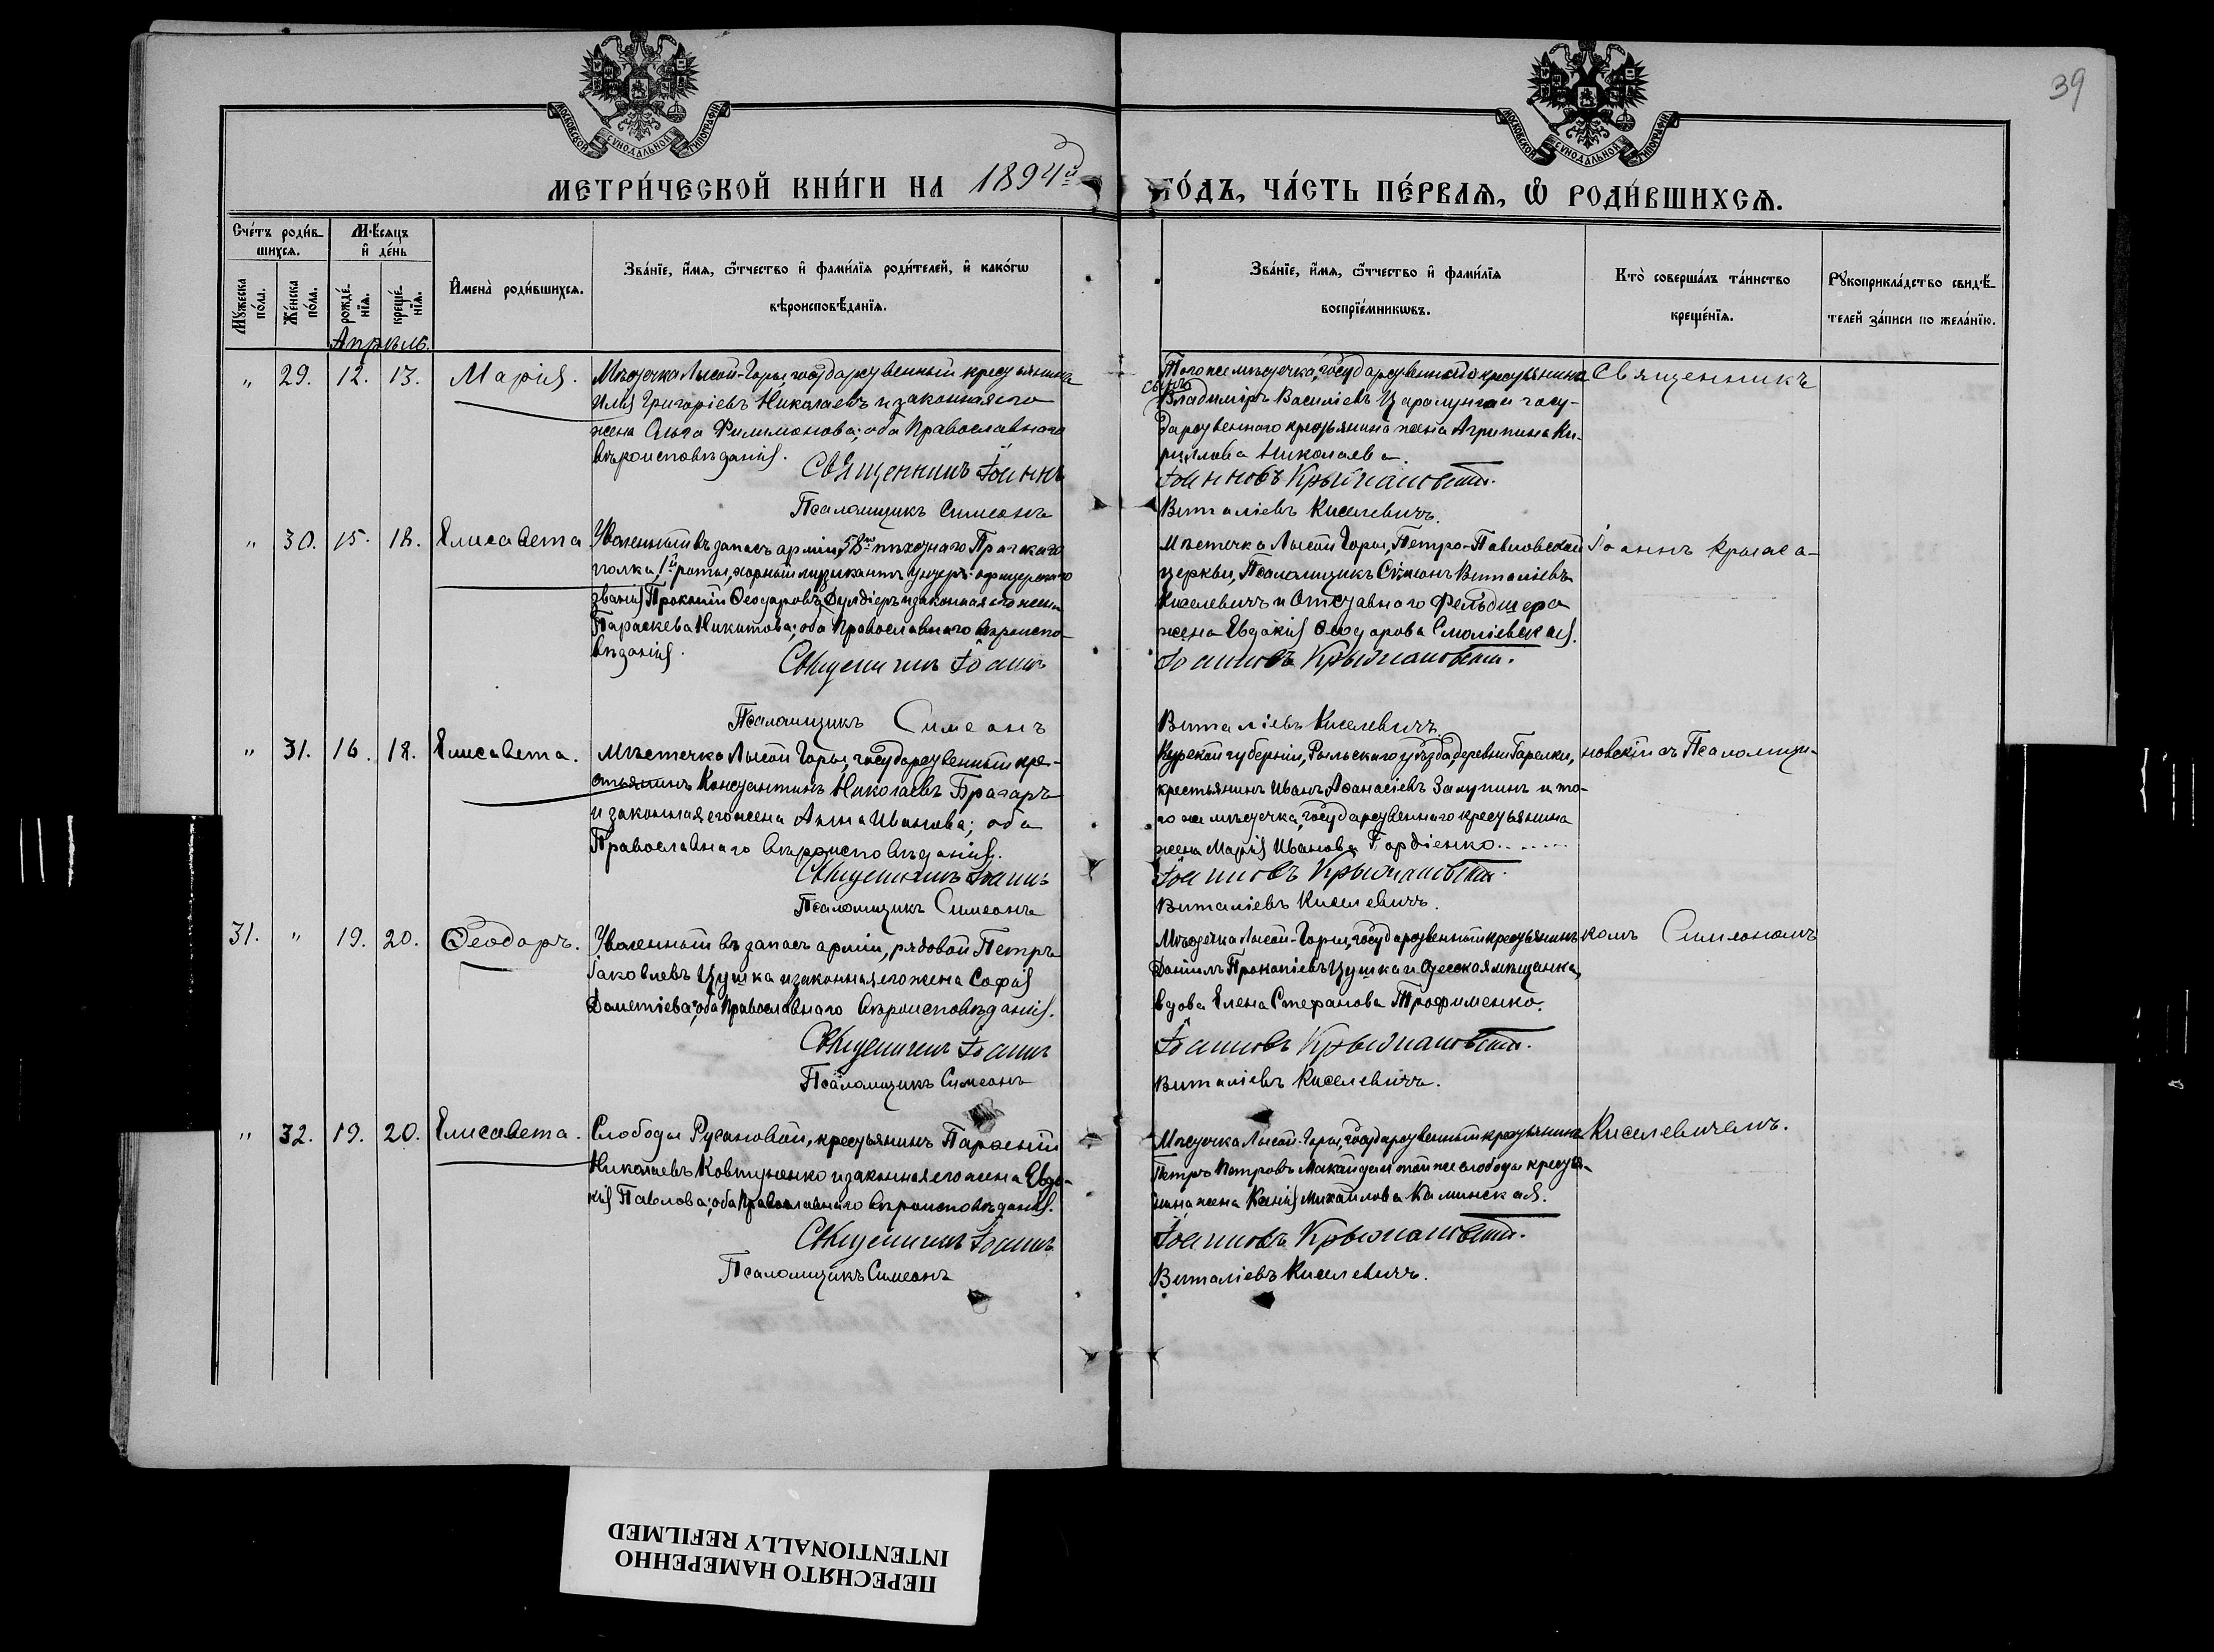 39
МОСКОВСКОЙ СѴНОДАЛЬНОЙ ТИПОГРАФІИ
МОСКОВСКОЙ СѴНОДАЛЬНОЙ ТИПОГРАФІИ
МЕТРИ́ЧЕСКОЙ КНИ́ГИ НА 1894й
ГО́ДЪ, ЧА́СТЬ ПЕ́РВАѦ, Ѡ҆ РОДИ́ВШИХСѦ.
Сче́тъ роди́в-
шихсѧ.
Мꙋ́жеска по́ла.
Же́нска по́ла.
Мѣ́сѧцъ
и҆ де́нь
рожде́-
нїѧ.
креще́-
нїѧ.
И҆мена̀ роди́вшихсѧ.
Зва́нїе, и҆́мѧ, ѻ҆́тчество и҆ фами́лїѧ роди́телей, и҆ како́гѡ
вѣроисповѣ́данїѧ.
Зва́нїе, и҆́мѧ, ѻ҆́тчество и҆ фами́лїѧ
воспрїе́мникѡвъ.
Кто̀ соверша́лъ та́инство
креще́нїѧ.
Рꙋкоприкла́дство свидѣ́-
телей за́писи по жела́нїю.
Апрѣль.
" 29. 12. 13. Марія.
Мѣстечка Лысой-Горы, государственный крестьянинъ
Илія Григоріевъ Николаевъ и законная его
жена Ольга Филимонова; оба Православнаго
вѣроисповѣданія.
Священникъ Іоаннъ
Псаломщикъ Симеонъ
Того же мѣстечка, государственнаго крестьянина
сынъ
Владиміръ Василіевъ и госу-
дарственнаго крестьянина жена Агрипина Ки-
риллова Николаева.
Іоанновъ Крыжановскій.
Виталіевъ Киселевичъ.
Священникъ
" 30. 15. 18. Елисавета
Уволенный въ запасъ арміи, 58го пѣхотнаго Пражскаго
полка, 1й роты, хорный музыкантъ унтеръ-офицерскаго
званія Прокопій Ѳеодоровъ и законная его жена
Параскева Никитова; оба Православнаго вѣроиспо-
вѣданія.
Священникъ Іоаннъ
Псаломщикъ Симеонъ
Мѣстечка Лысой Горы, Петро-Павловской
церкви, Псаломщикъ Симеонъ Виталіевъ
Киселевичъ и Отставнаго Фельдшера
жена Евдокія Ѳеодорова Смолѣвская.
Іоанновъ Крыжановскій.
Виталіевъ Киселевичъ.
Іоаннъ Крыжа-
" 31. 16. 18. Елисавета.
Мѣстечка Лысой Горы, государственный кре-
стьянинъ Константинъ Николаевъ Брагарь
и законная его жена Анна Иванова; оба
Православнаго вѣроисповѣданія.
Священникъ Іоаннъ
Псаломщикъ Симеонъ
Курской губерніи, Рыльскаго уѣзда, деревни Гарелки,
крестьянинъ Иванъ Аѳанасіевъ Залупинъ и то-
го же мѣстечка, государственнаго крестьянина
жена Марія Иванова Гордіенко.......
Іоанновъ Крыжановскій.
Виталіевъ Киселевичъ.
новскій съ Псаломщи-
31. " 19. 20. Ѳеодоръ.
Уволенный въ запасъ арміи, рядовой Петръ
Іаковлевъ Цушка и законная его жена Софія
Дометіева; оба Православнаго вѣроисповѣданія.
Священникъ Іоаннъ
Псаломщикъ Симеонъ
Мѣстечка Лысой-Горы, государственный крестьянинъ
Даніилъ Прокопіевъ Цушка и Одесская мѣщанка,
вдова Елена Стефанова Трофименко.
Іоанновъ Крыжановскій.
Виталіевъ Киселевичъ.
комъ Симеономъ
" 32. 19. 20. Елисавета.
Слободы Русановой, крестьянинъ Парѳеній
Николаевъ Ковтуненко и законная его жена Евдо-
кія Павлова; оба Православнаго вѣроисповѣданія.
Священникъ Іоаннъ
Псаломщикъ Симеонъ
Мѣстечка Лысой-Горы, государственный крестьянинъ
Петръ Петровъ и той же слободы крестья-
нина жена Ксенія Михаилова Каминская.
Іоанновъ Крыжановскій.
Виталіевъ Киселевичъ.
Киселевичемъ.
ПЕРЕСНЯТО НАМЕРЕННО
INTENTIONALLY REFILMED